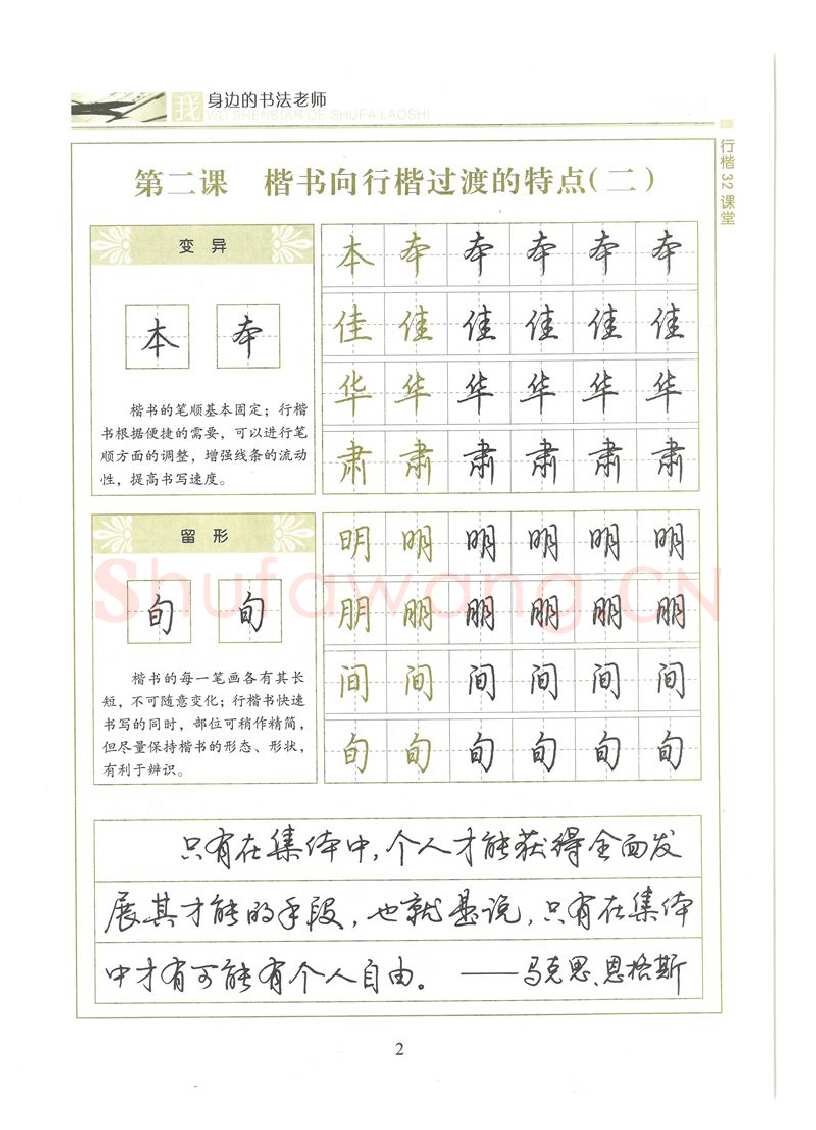 我 身边的书法老师
WO SHENBIAN DE SHUFA LAOSHI
行楷32课堂
第二课 楷书向行楷过渡的特点(二)
变异
本 本
楷书的笔顺基本固定;行楷
书根据便捷的需要,可以进行笔
顺方面的调整,增强线条的流动
性,提高书写速度。
本 本 本 本 本 本
佳 佳 佳 佳 佳 佳
华 华 华 华 华 华
肃 肃 肃 肃 肃 肃
留形
旬 旬
楷书的每一笔画各有其长
短,不可随意变化;行楷书快速
书写的同时,部位可稍作精简,
但尽量保持楷书的形态、形状,
有利于辨识。
明 明 明 明 明 明
朋 朋 朋 朋 朋 朋
间 间 间 间 间 间
旬 旬 旬 旬 旬 旬
Shufawang.CN
只有在集体中,个人才能获得全面发
展其才能的手段,也就是说,只有在集体
中才有可能有个人自由。——马克思、恩格斯
2